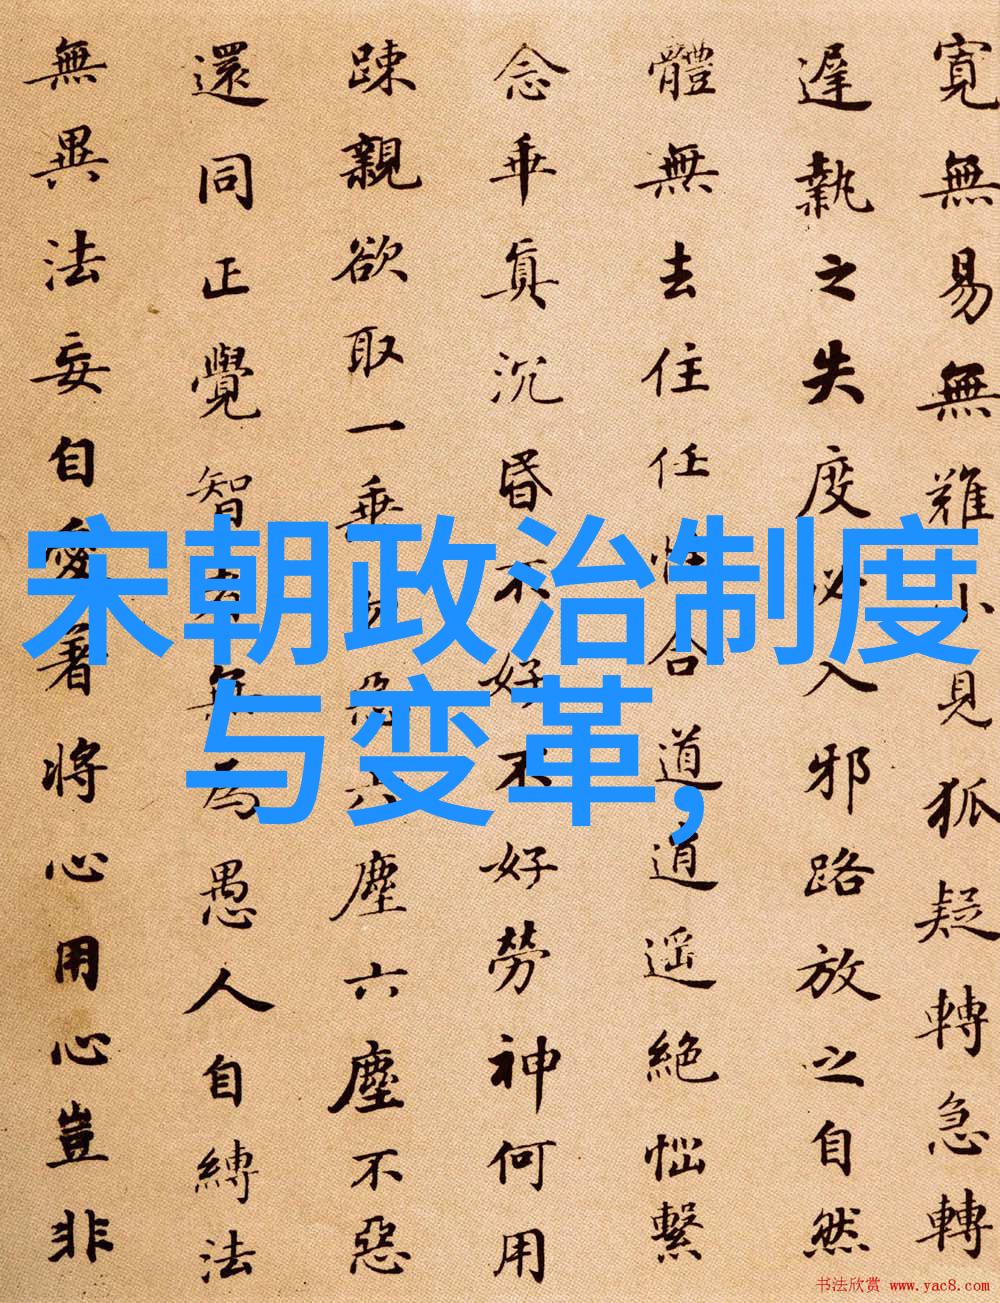 寬無易無難小見狐疑轉急轉
遲執之失度必入邪路放之自然
體無去住任性合道逍遥絶惱繫
念乖真沉昏不好不好勞神何用
踈親欲取一乘勿惡六塵六塵不惡
還同正覺智者無為愚人自縛法
無異法妄自愛著將心用心豈非
宋朝政治制度
与变革,
书法欣赏 www.yac8.com